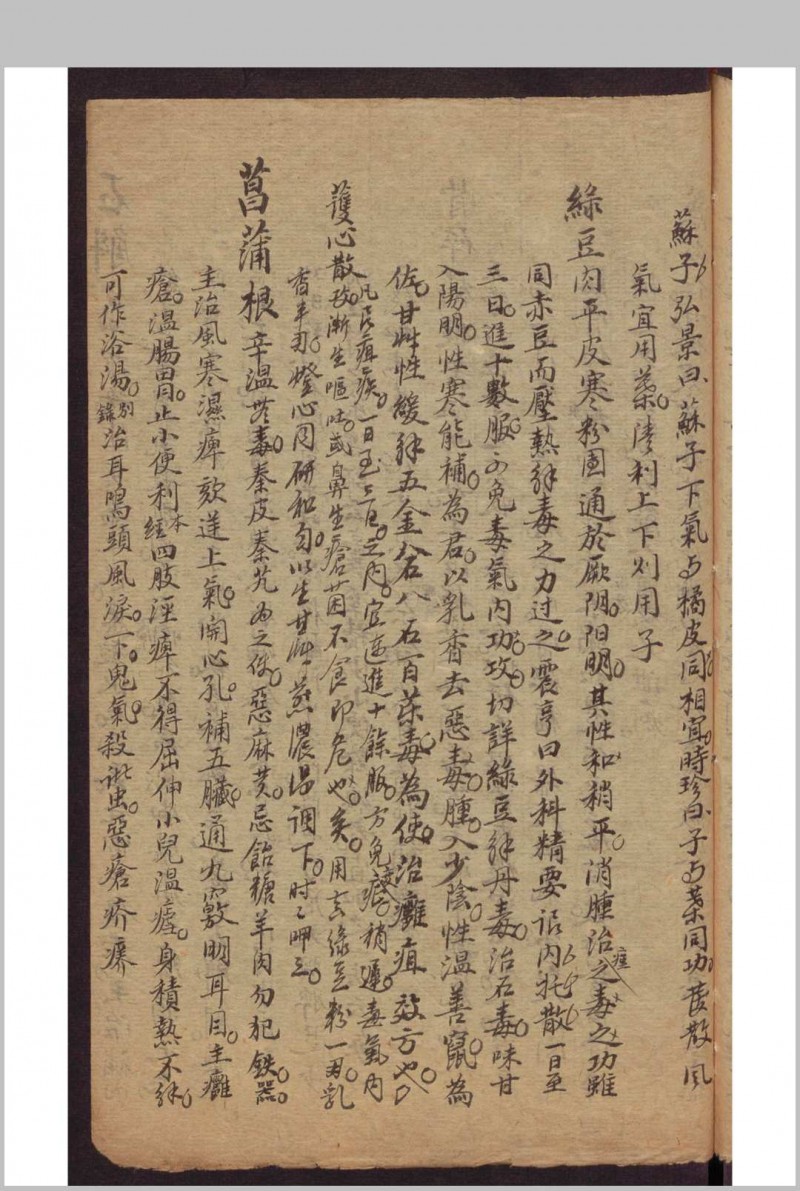 蘇子弘景曰蘇子下氣与橘皮同相宜時珍曰子与葉同功發散风
氣宜用葉清利上下则用子
綠豆肉平皮寒粉囯通於厥阴阳明其性和稍平消腫治痘之毒之功雖
同赤豆而壓熱觧毒之力过之震亨曰外科精要误内托散一日至
三日進十數服可免毒氣内功攻切詳綠豆觧丹毒治石毒味甘
入陽明性寒能補為君以乳香去惡毒腫入少陰性温善竄為
佐甘艸性緩觧五金八石百藥毒為使治癰疽效方也
護心散凡有疽疾一日至三日之内宜連進十餘服方免痰稍遲毒氣内
攻漸生嘔吐或鼻生瘡菌不食即危也矣用真綠豆粉一两乳
香半两燈心同研和匀以生甘艸煎濃湯調下时〻呷之
菖蒲根辛温無毒秦皮秦艽為之使惡麻黄忌飴糖羊肉勿犯鉄器
主治風寒濕痺欬逆上氣開心孔補五臟通九竅明耳目主癰
瘡温腸胃止小便利本經四肢溼痺不得屈伸小兒温瘧身積熱不觧
可作浴湯别錄治耳鳴頭風淚下鬼氣殺諸虫惡瘡疥瘙